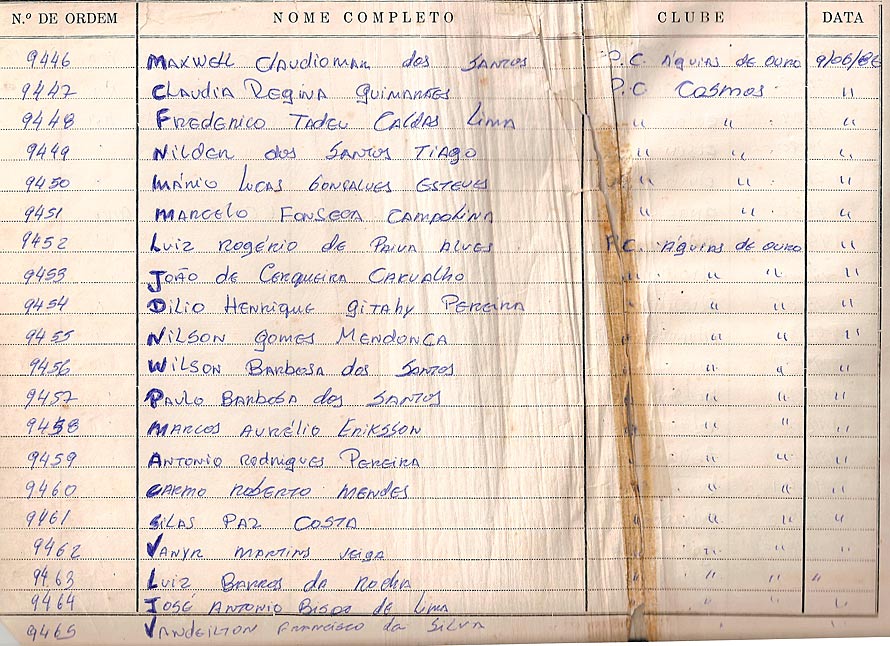 N.º DE ORDEM NOME COMPLETO CLUBE DATA
9446 Maxwell Claudiomar dos Santos P.C. Águias de ouro 9/06/86
9447 Claudia Regina Guimarães P.C Cosmos "
9448 Frederico Tadeu Caldas Lima " " "
9449 Nilder dos Santos Tiago " " "
9450 Mário Lucas Gonçalves Esteves " " "
9451 Marcelo Fonseca Campolina " " "
9452 Luiz Rogério de Paiva Alves P.C. Águias de ouro "
9453 João de Cerqueira Carvalho " " " "
9454 Dilio Henrique Gitahy Pereira " " " "
9455 Nilson Gomes Mendonça " " " "
9456 Wilson Barbosa dos Santos " " " "
9457 Paulo Barbosa dos Santos " " " "
9458 Marcos Aurélio Eriksson " " " "
9459 Antonio Rodrigues Pereira " " " "
9460 Carmo Roberto Mendes " " " "
9461 Silas Paz Costa " " " "
9462 Vanyr Martins Veiga " " "
9463 Luiz Barros da Rocha " " " "
9464 José Antonio de Lima " " "
9465 Vandeilton Francisco da Silva